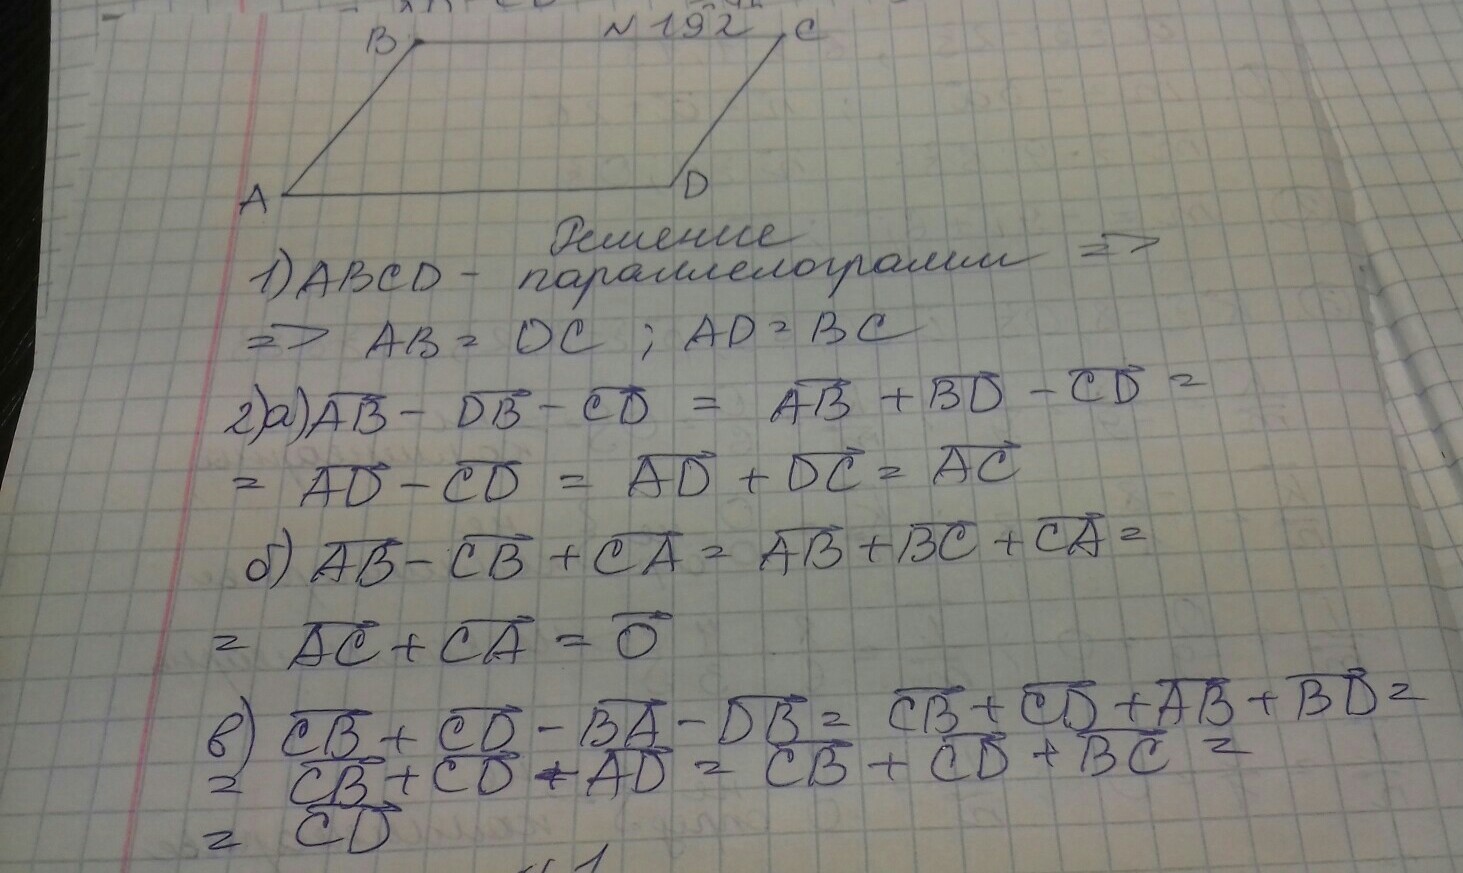 N 192
B C
A D
Решение
1) ABCD - параллелограмм =>
=> AB = DC ; AD = BC
2)а) A͞B - D͞B - C͞D = A͞B + B͞D - C͞D =
= A͞D - C͞D = A͞D + D͞C = A͞C
б) A͞B - C͞B + C͞A = A͞B + B͞C + C͞A =
= A͞C + C͞A = 0͞
в) C͞B + C͞D - B͞A - D͞B = C͞B + C͞D + A͞B + B͞D =
= C͞B + C͞D + A͞D = C͞B + C͞D + B͞C =
= C͞D